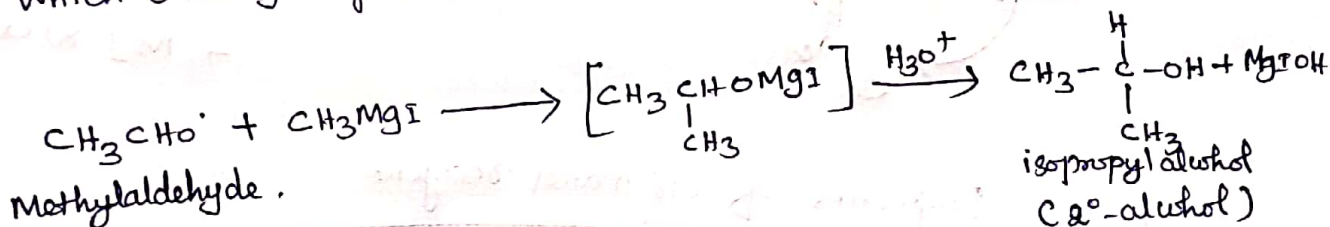 CH3CHO + CH3MgI ⟶ [CH3CHOMgI] H3O+ ⟶ CH3-C-OH + MgIOH
H
CH3
CH3
Methylaldehyde.
isopropyl alcohol
(2°-alcohol)